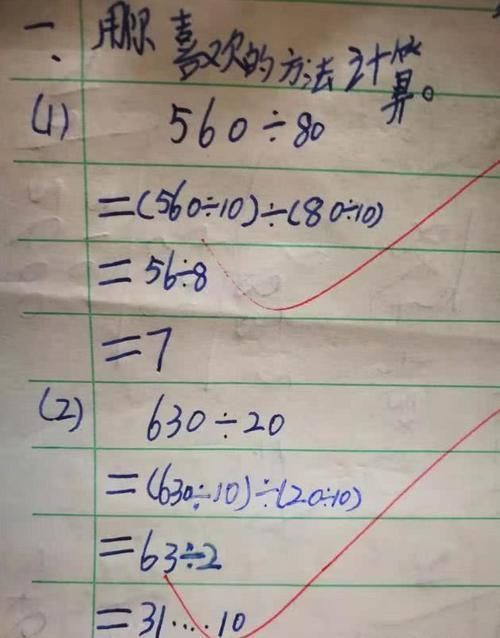 一、用你喜欢的方法计算。
(1) 560÷80
=(560÷10)÷(80÷10)
=56÷8
=7
(2) 630÷20
=(630÷10)÷(20÷10)
=63÷2
=31····10